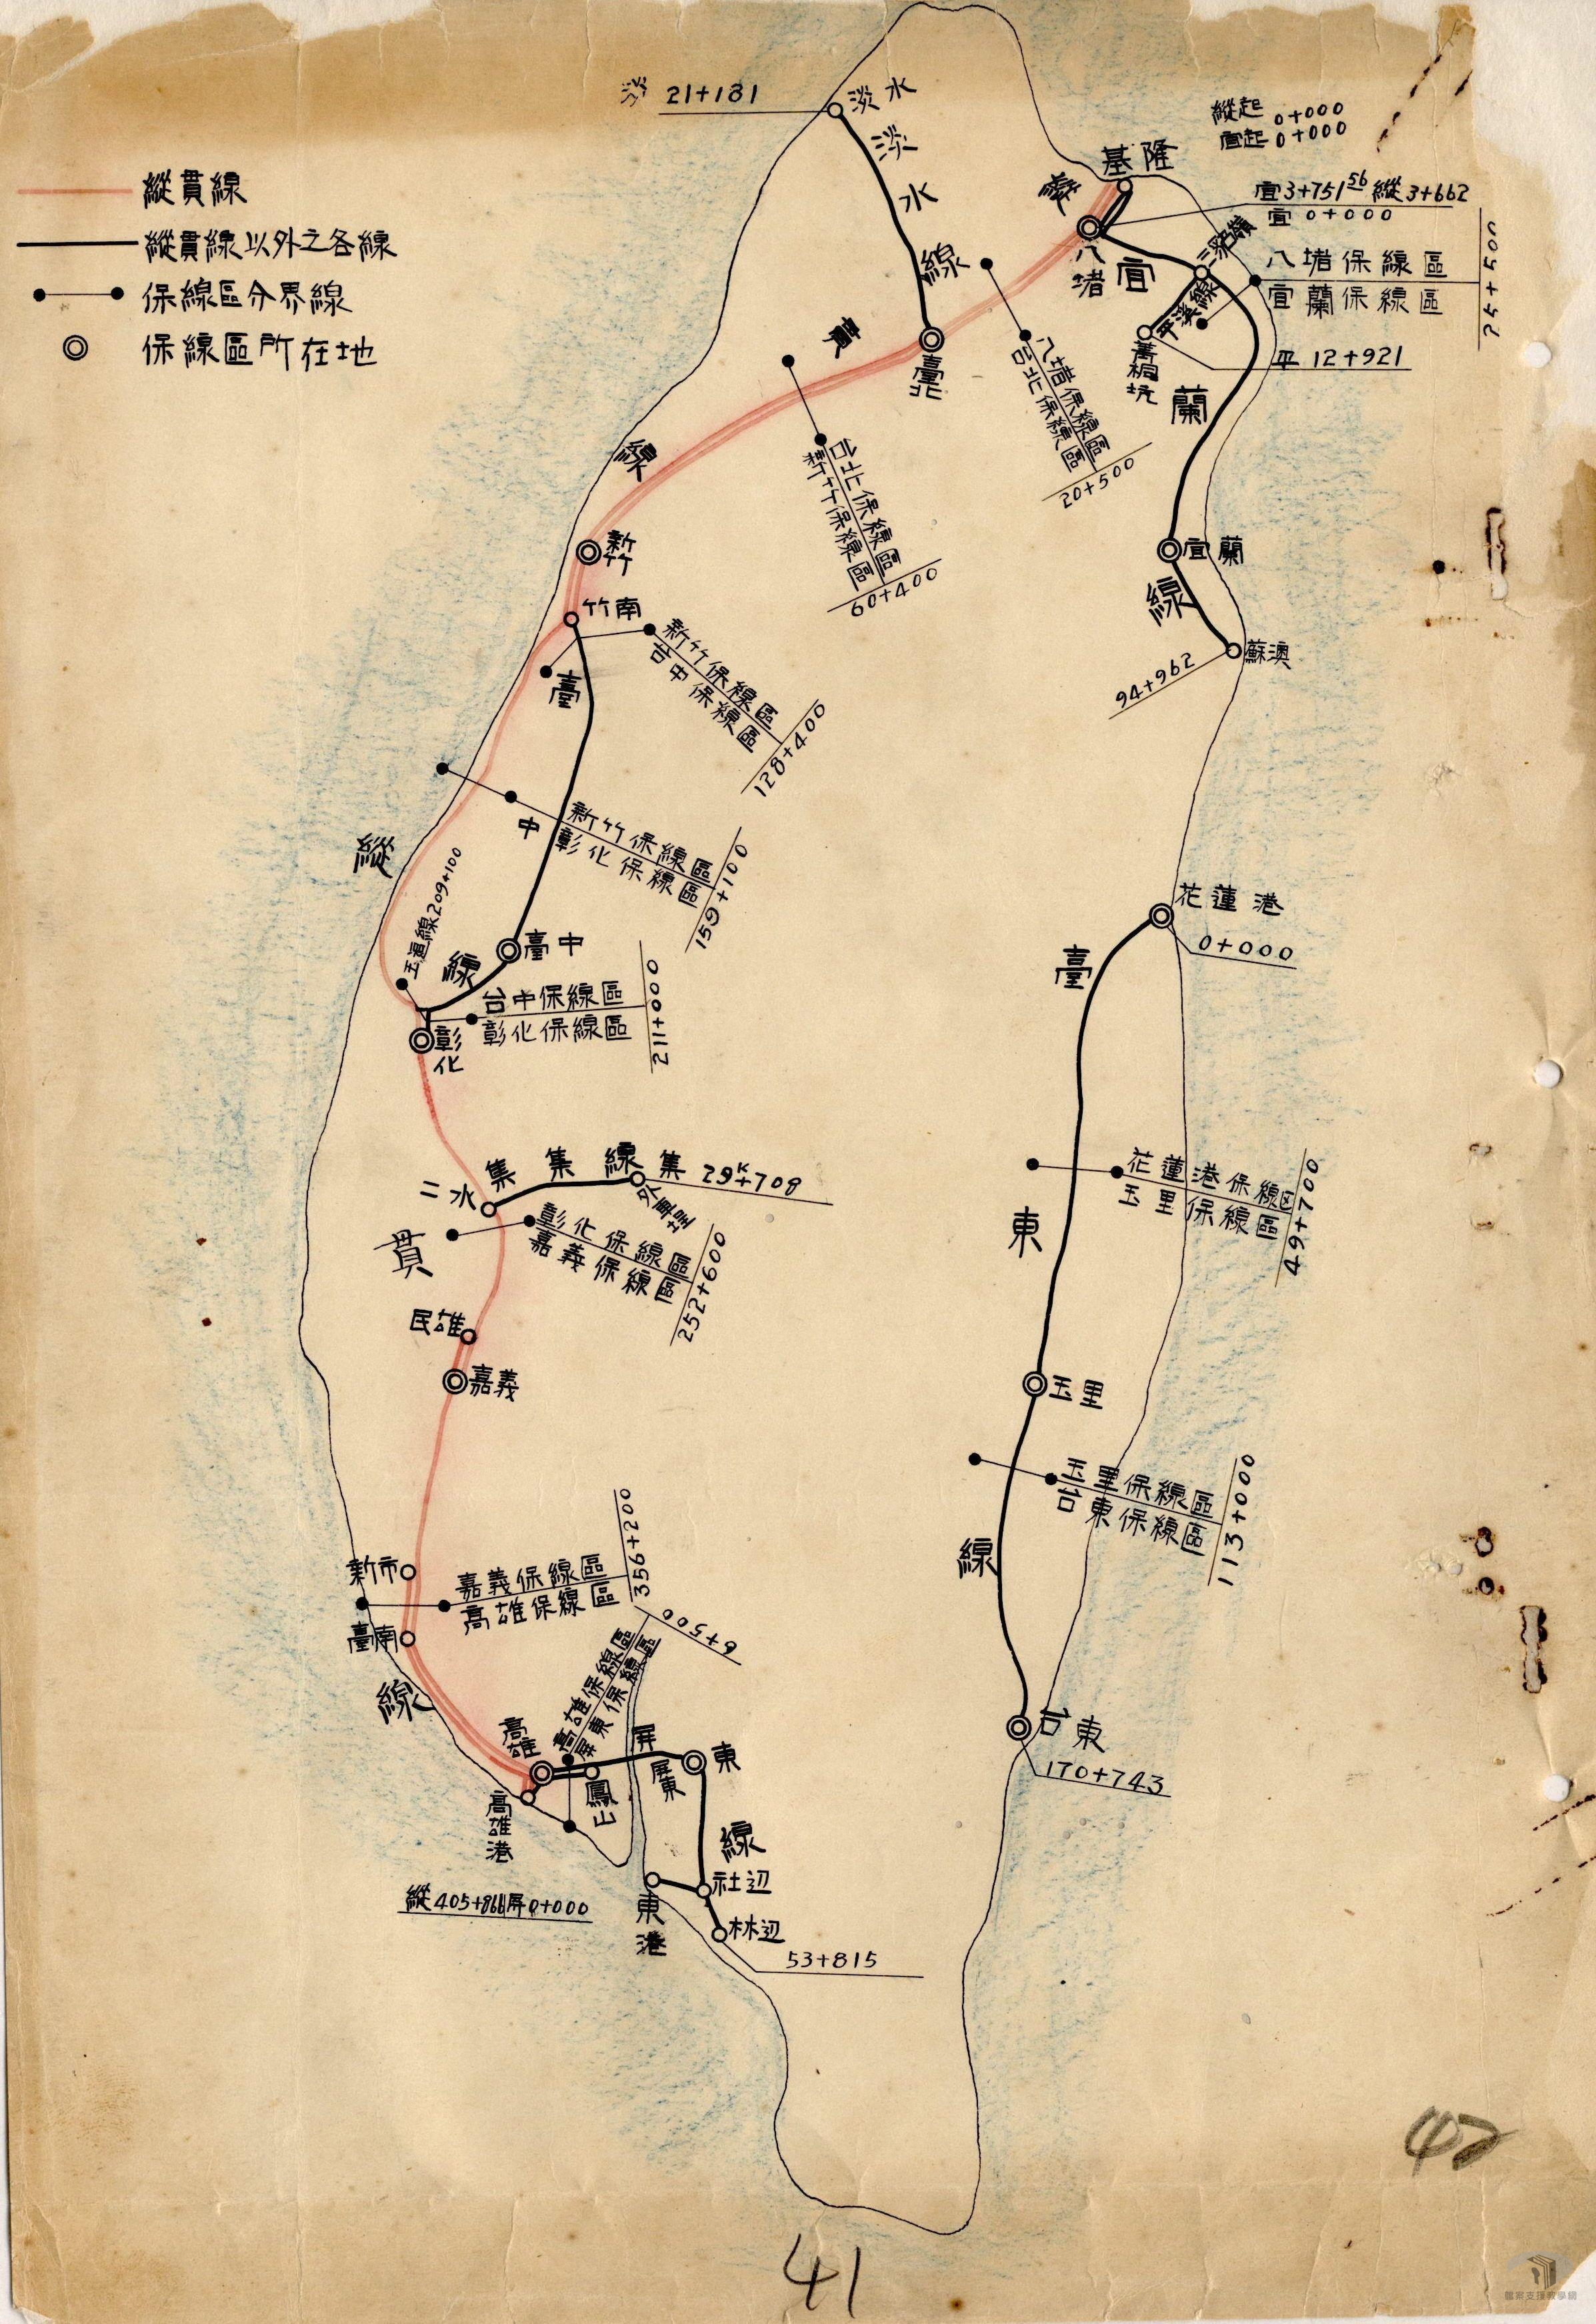 縱貫線
縱貫線以外之各線
保線區分界線
保線區所在地
淡 21+181
淡水
淡水線
縱起 0+000
宜起 0+000
基隆
宜3+751⁵⁶ 縱3+662
宜 0+000
八堵
三貂嶺
八堵保線區
宜蘭保線區
25+500
平溪線
菁桐坑
平 12+921
宜蘭線
縱貫線
臺北
八堵保線區
台北保線區
20+500
台北保線區
新竹保線區
60+400
新竹
竹南
宜蘭
蘇澳
94+962
新竹保線區
台中保線區
128+400
臺中線
新竹保線區
彰化保線區
159+100
209+100
臺中
台中保線區
彰化保線區
211+000
彰化
花蓮港
0+000
臺東線
縱貫線
二水
集集線
集 29ᴷ+708
外車埕
彰化保線區
嘉義保線區
252+600
花蓮港保線区
玉里保線區
49+700
民雄
嘉義
玉里
玉里保線區
台東保線區
113+000
新市
嘉義保線區
高雄保線區
356+200
臺南
高雄保線區
屏東保線區
6+500
高雄
鳳山
高雄港
屏東
屏東線
台東
170+743
縱405+866 屏0+000
東港
社辺
林辺
53+815
42
41
檔案支援教學網